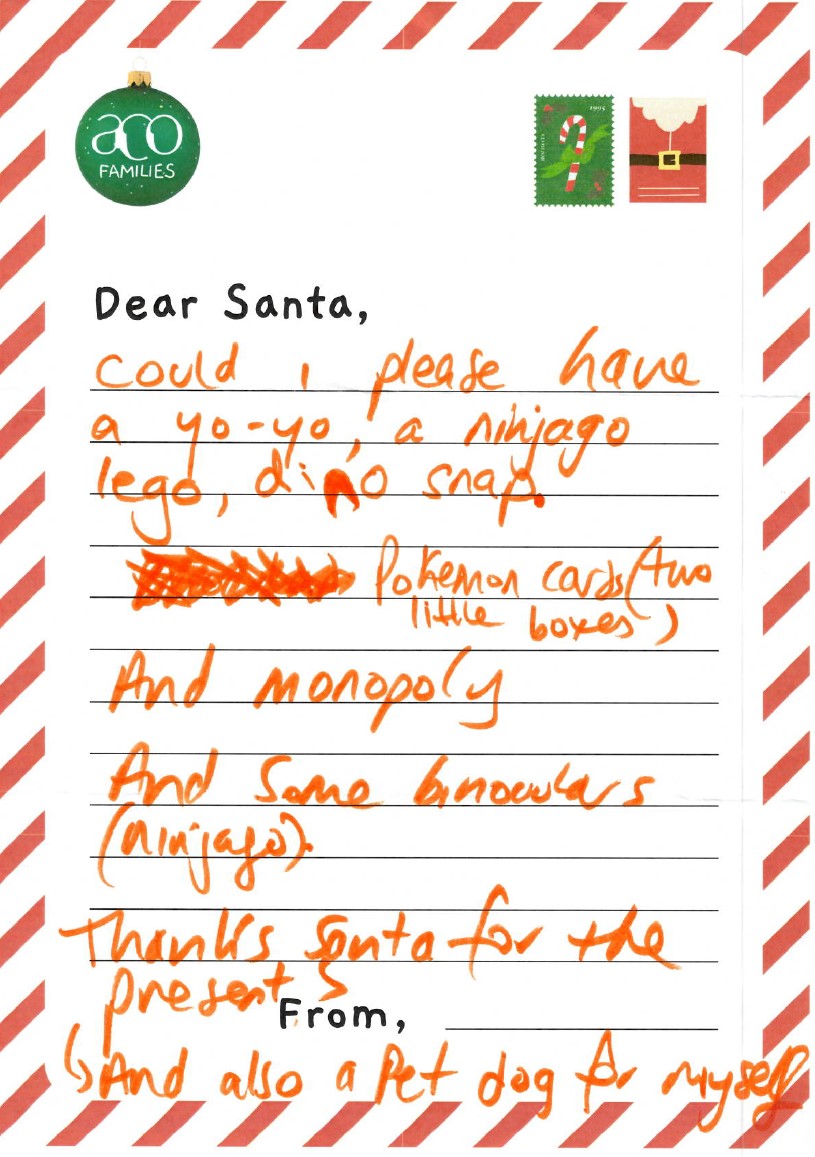 aco
FAMILIES
Dear Santa,
could i please have
a yo-yo, a ninjago
lego, dino snap.
Pokemon cards (two
little boxes)
And monopoly
And some binoculars
(ninjago).
Thanks Santa for the
presents
From,
And also a Pet dog for myself